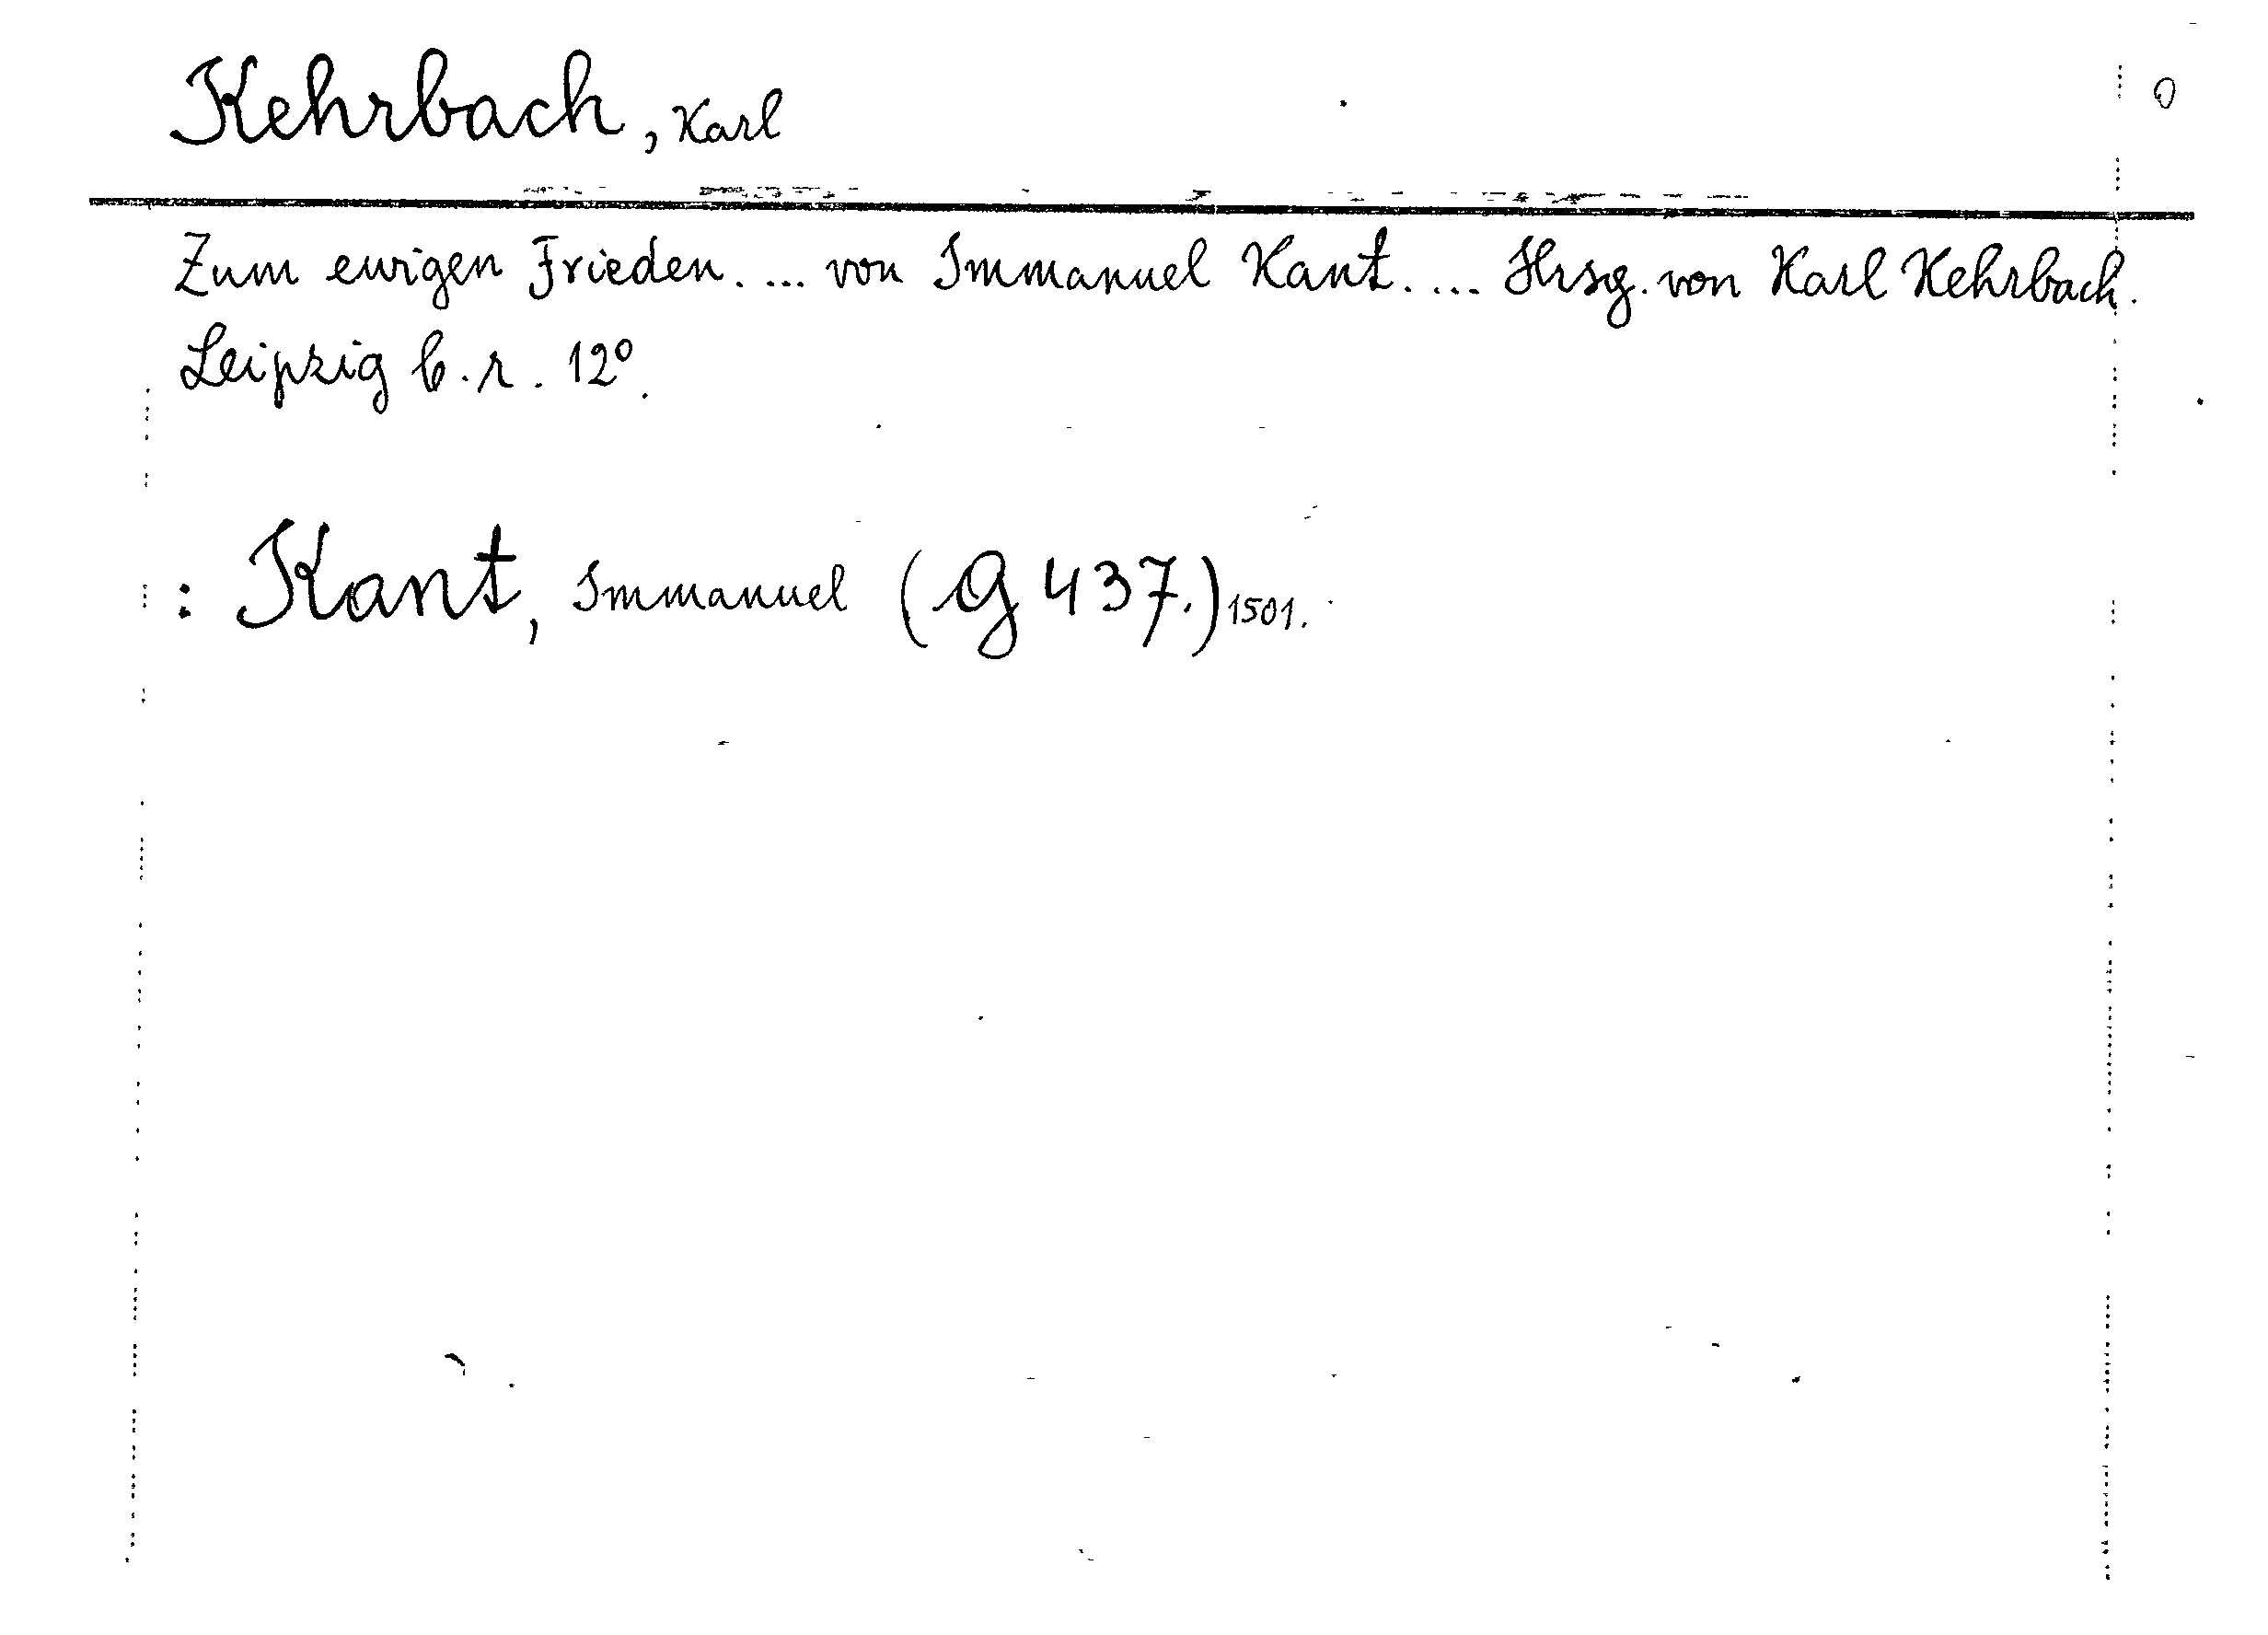 Kehrbach, Karl
0
Zum ewigen Frieden. ... von Immanuel Kant. ... Hrsg. von Karl Kehrbach.
Leipzig b. r. 12⁰.
: Kant, Immanuel (G 437.) 1501.